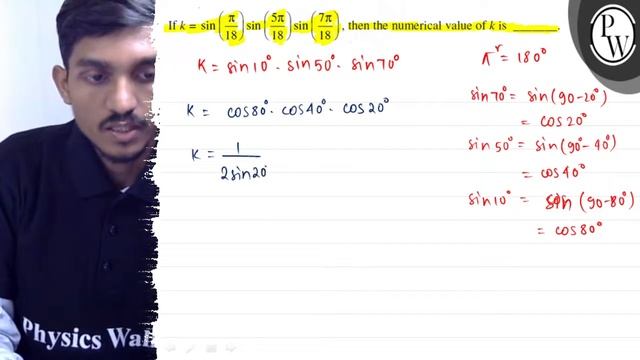 If k = sin(π/18) sin(5π/18) sin(7π/18), then the numerical value of k is ______.
K = sin10° · sin50° · sin70°
K = cos80° · cos40° · cos20°
K = 1/2sin20°
π^r = 180°
sin70° = sin(90-20°)
= cos20°
sin50° = sin(90°-40°)
= cos40°
sin10° = sin(90-80°)
= cos80°
PW
Physics Wal